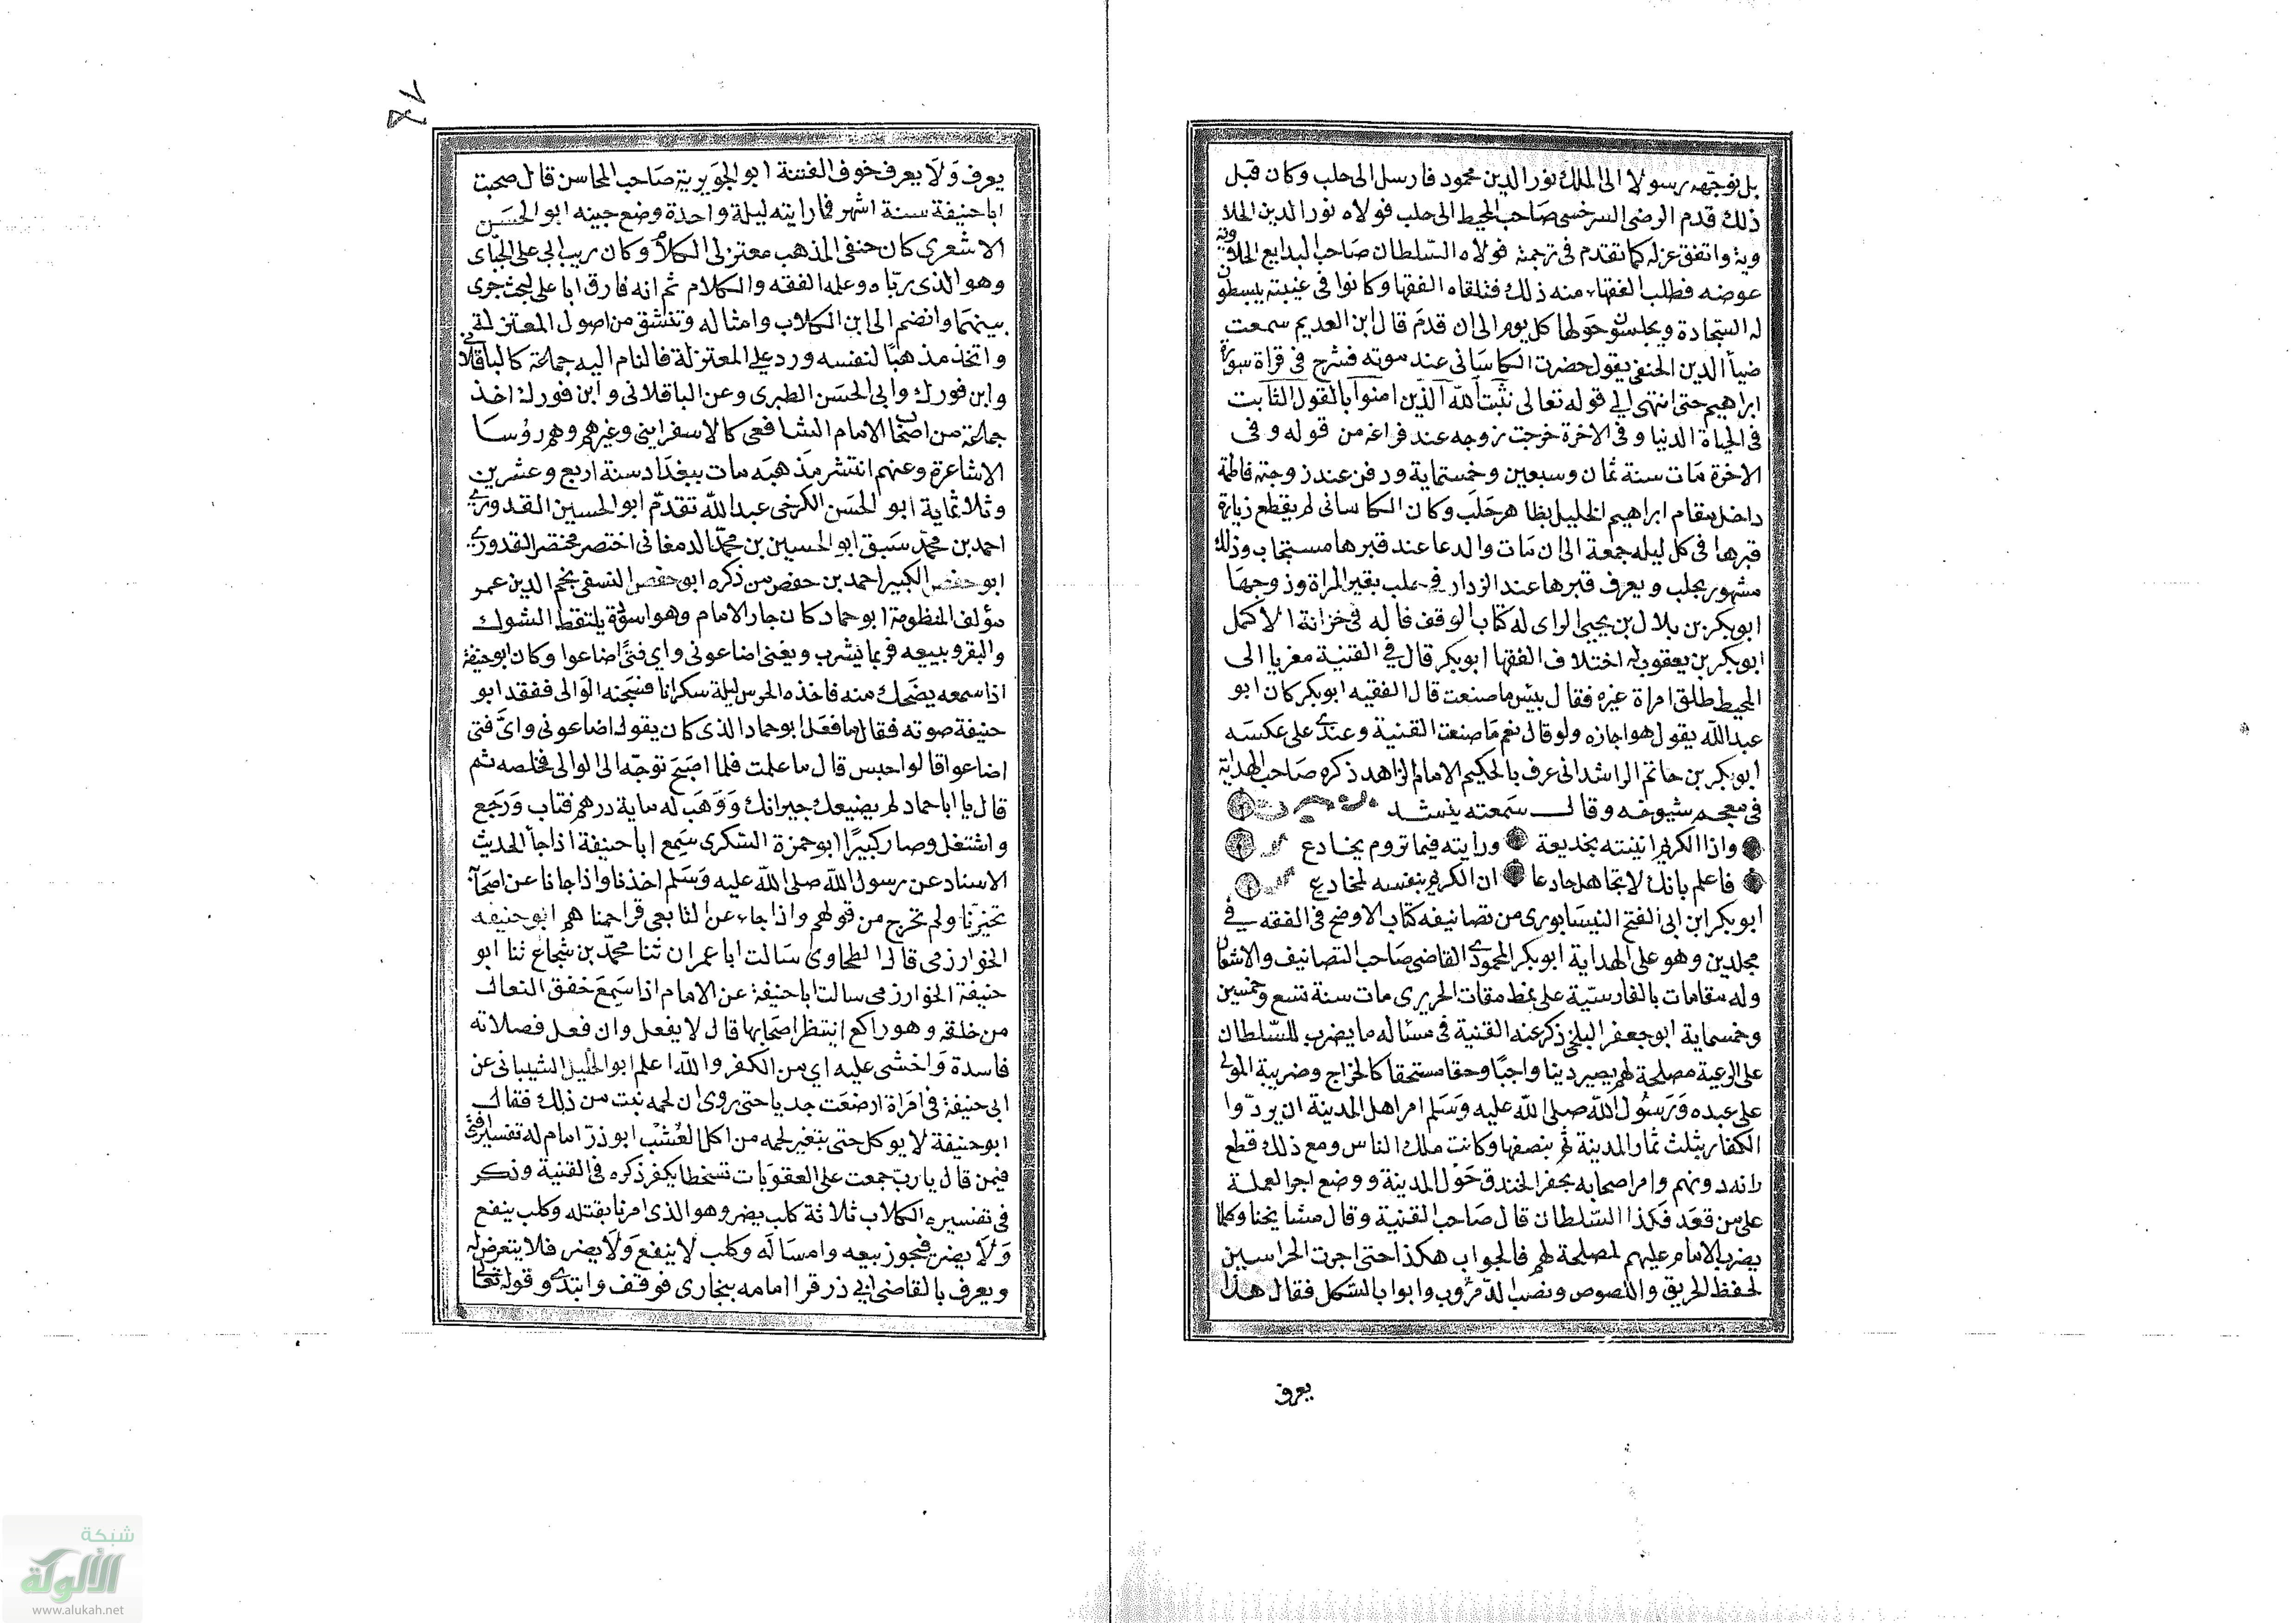 بل نوجهه رسولا الى الملك نور الدين محمود فارسل الى حلب وكان قبل
ذلك قدم الرضى السرخسى صاحب المحيط الى حلب فولاه نور الدين الحلا
وية واتفق عزله كما تقدم فى ترجمته فولاه السلطان صاحب البدايع الحلاوية
عوضه فطلب الفقهاء منه ذلك فتلقاه الفقها وكانوا فى غيبته يبسطون
له السجادة ويجلسون حولها كل يوم الى ان قدم قال ابن العديم سمعت
ضيأ الدين الحنفى يقول حضرت الكاسانى عند موته فشرع فى قراة سورة
ابراهيم حتى انتهى الى قوله تعالى يثبت الله الذين امنوا بالقول الثابت
فى الحياة الدنيا وفى الاخرة خرجت روحه عند فراغه من قوله وفى
الاخرة مات سنة ثمان وسبعين وخمسماية ودفن عند زوجته فاطمة
داخل مقام ابراهيم الخليل بظاهر حلب وكان الكاسانى لم يقطع زيارة
قبرها فى كل ليله جمعة الى ان مات والدعا عند قبرها مستجاب وذلك
مشهور بحلب ويعرف قبرها عند الزوار فى حلب بقبر المراة وزوجها
ابوبكر بن بلال بن يحيى الراى له كتاب الوقف قاله فى خزانة الاكمل
ابوبكر بن يعقوب له اختلاف الفقها ابوبكر قال فى القنية معزيا الى
المحيط طلق امراة غيره فقال بيس ما صنعت قال الفقيه ابوبكر كان ابو
عبدالله يقول هو اجازه ولو قال نعم ما صنعت القنية وعندى على عكسه
ابوبكر بن حاتم الراشدانى عرف بالحكيم الامام الزاهد ذكره صاحب الهداية
فى معجم شيوخه وقال سمعته ينشد
واذا الكريم اتيته بخديعة ورأيته فيما تروم يخادع
فاعلم بانك لا تجاهل جادعا ان الكريم بنفسه لمخادع
ابوبكر ابن ابى الفتح النيسابورى من تصانيفه كتاب الاوضح فى الفقه فى
مجلدين وهو على الهداية ابوبكر المحمودى القاضى صاحب التصانيف والاشعار
وله مقامات بالفارسية على نمط مقات الحريرى مات سنة تسع وخمسين
وخمسماية ابو جعفر البلخى ذكر عنه القنية فى مسأله ما يضرب للسلطان
على الرعية مصلحة لهم يصير دينا واجبا وحقا مستحقا كالخراج وضريبة المولى
على عبده ورسول الله صلى الله عليه وسلم امر اهل المدينة ان يردوا
الكفار بثلث ثمار المدينة ثم بنصفها وكانت ملك الناس ومع ذلك قطع
رانه دونهم وامر اصحابه بحفر الخندق حول المدينة ووضع اجر العملة
على من قعد فكذا السلطان قال صاحب القنية وقال مشايخنا وكلما
يضرب الامام عليهم لمصلحة لهم فالجواب هكذا حتى اجرت الحراسين
لحفظ الحريق واللصوص ونصب الدروب وابواب السكك فقال هذا
يعرف
٤٧
يعرف ولا يعرف خوف الفتنة ابو الجويرية صاحب المحاسن قال صحبت
اباحنيفة ستة اشهر فما رايته ليلة واحدة وضع جبينه ابو الحسن
الاشعرى كان حنفى المذهب معتزلى الكلام وكان ربيب ابى على الجباى
وهو الذى رباه وعلمه الفقه والكلام ثم انه فارق ابا على لبحث جرى
بينهما وانضم الى ابن الكلاب وامثاله وتنشق من اصول المعتزلة
واتخذ مذهبا لنفسه ورد على المعتزلة فالتام اليه جماعة كالباقلانى
وابن فورك وابى الحسن الطبرى وعن الباقلانى وابن فورك اخذ
جماعة من اصحاب الامام الشافعى كالاسفراينى وغيرهم وهم رؤسا
الاشاعرة وعنهم انتشر مذهبه مات ببغداد سنة اربع وعشرين
وثلاثماية ابو الحسن الكرخى عبدالله تقدم ابو الحسين القدورى
احمد بن محمد سبق ابو الحسين بن محمد الدمغانى اختصر مختصر القدورى
ابو حفص الكبير احمد بن حفص من ذكره ابو حفص النسفى نجم الدين عمر
مؤلف المنظومة ابو حماد كان جار الامام وهو اسوقة يلتقط الشوك
والبقر ويبيعه فربما يشرب ويغنى اضاعونى واى فتى اضاعوا وكان ابوحنيفة
اذا سمعه يضحك منه فاخذه الحرس ليلة سكرانا فسجنه الوالى ففقد ابو
حنيفة صوته فقال ما فعل ابو حماد الذى كان يقول اضاعونى واى فتى
اضاعوا قالوا حبس قال ما علمت فلما اصبح توجه الى الوالى فخلصه ثم
قال يا ابا حماد لم يضيعك جيرانك ووهب له ماية درهم فتاب ورجع
واشتغل وصار كبيرا ابو حمزة السكرى سمع اباحنيفة اذا جأ الحديث
الاسناد عن رسول الله صلى الله عليه وسلم اخذنا واذا جانا عن اصحابه
تخيرنا ولم نخرج من قولهم واذا جاء عن التابعى زاحمناهم ابو حنيفه
الخوارزمى قال الطحاوى سالت ابا عمران ثنا محمد بن شجاع ثنا ابو
حنيفة الخوارزمى سالت اباحنيفة عن الامام اذا سمع خفق النعال
من خلفه وهو راكع اينتظر اصحابها قال لا يفعل وان فعل فصلاته
فاسدة واخشى عليه اى من الكفر والله اعلم ابو الخليل الشيبانى عن
ابى حنيفة فى امراة ارضعت جديا حتى روى ان لحمه نبت من ذلك فقال
ابوحنيفة لا يوكل حتى يتغير لحمه من اكل العشب ابو ذر امام له تفسير افتى
فيمن قال يارب جمعت على العقوبات تسخطا يكفر ذكره فى القنية وذكر
فى تفسيره الكلاب ثلاثة كلب يضر وهو الذى امرنا بقتله وكلب ينفع
ولا يضر فيجوز بيعه وامساكه وكلب لا ينفع ولا يضر فلا يتعرض له
ويعرف بالقاضى ابى ذر قرا امامه ببخارى فوقف وابتدى وقوله تعالى
شبكة
الألوكة
www.alukah.net